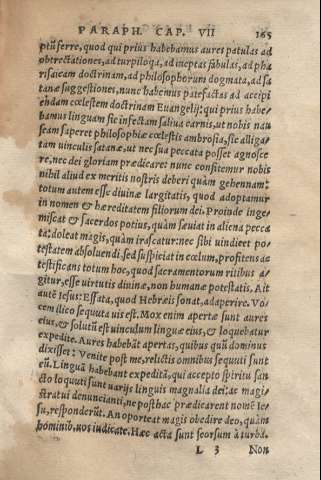 PARAPH. CAP. VII 165
ptũ ferre, quod qui prius habebamus aures patulas ad
obtrectationes, ad turpiloqa, ad ineptas fabulas, ad pha
risaicam doctrinam, ad philosophorum dogmata, ad sa
tanæ suggestiones, nunc habemus patefactas ad accipi
endam cœlestem doctrinam Euangelij: qui prius habe-
bamus linguam sic infectam saliua carnis, ut nobis nau
seam saperet philosophiæ cœlestis ambrosia, sic alliga-
tam uinculis satanæ, ut nec sua peccata posset agnosce
re, nec dei gloriam prædicaret nunc confitemur nobis
nihil aliud ex meritis nostris deberi quàm gehennam:
totum autem esse diuinæ largitatis, quod adoptamur
in nomen & hæreditatem filiorum dei. Proinde inge-
miscat & sacerdos potius, quàm sæuiat in aliena pecca
ta: doleat magis, quàm irascatur: nec sibi uindicet po-
testatem absoluendi. sed suspiciat in cœlum, profitens ac
testificans totum hoc, quod sacramentorum ritibus a-
gitur, esse uirtutis diuinæ, non humanæ potestatis. Ait
autẽ Iesus: Effata, quod Hebræis sonat, adaperire. Vo-
cem illico sequuta uis est. Mox enim apertæ sunt aures
eius, & solutũ est uinculum linguæ eius, & loquebatur
expedite. Aures habebãt apertas, quibus quũ dominus
dixisset: Venite post me, relictis omnibus sequuti sunt
eũ. Linguã habebant expeditã, qui accepto spiritu san-
cto loquuti sunt uarijs linguis magnalia dei: ac magi-
stratui denuncianti, ne posthac prædicarent nomẽ Ie-
su, responderũt. An oporteat magis obedire deo, quàm
hominib. uos iudicate. Hæc acta sunt seorsum à turba.
L 3 Non